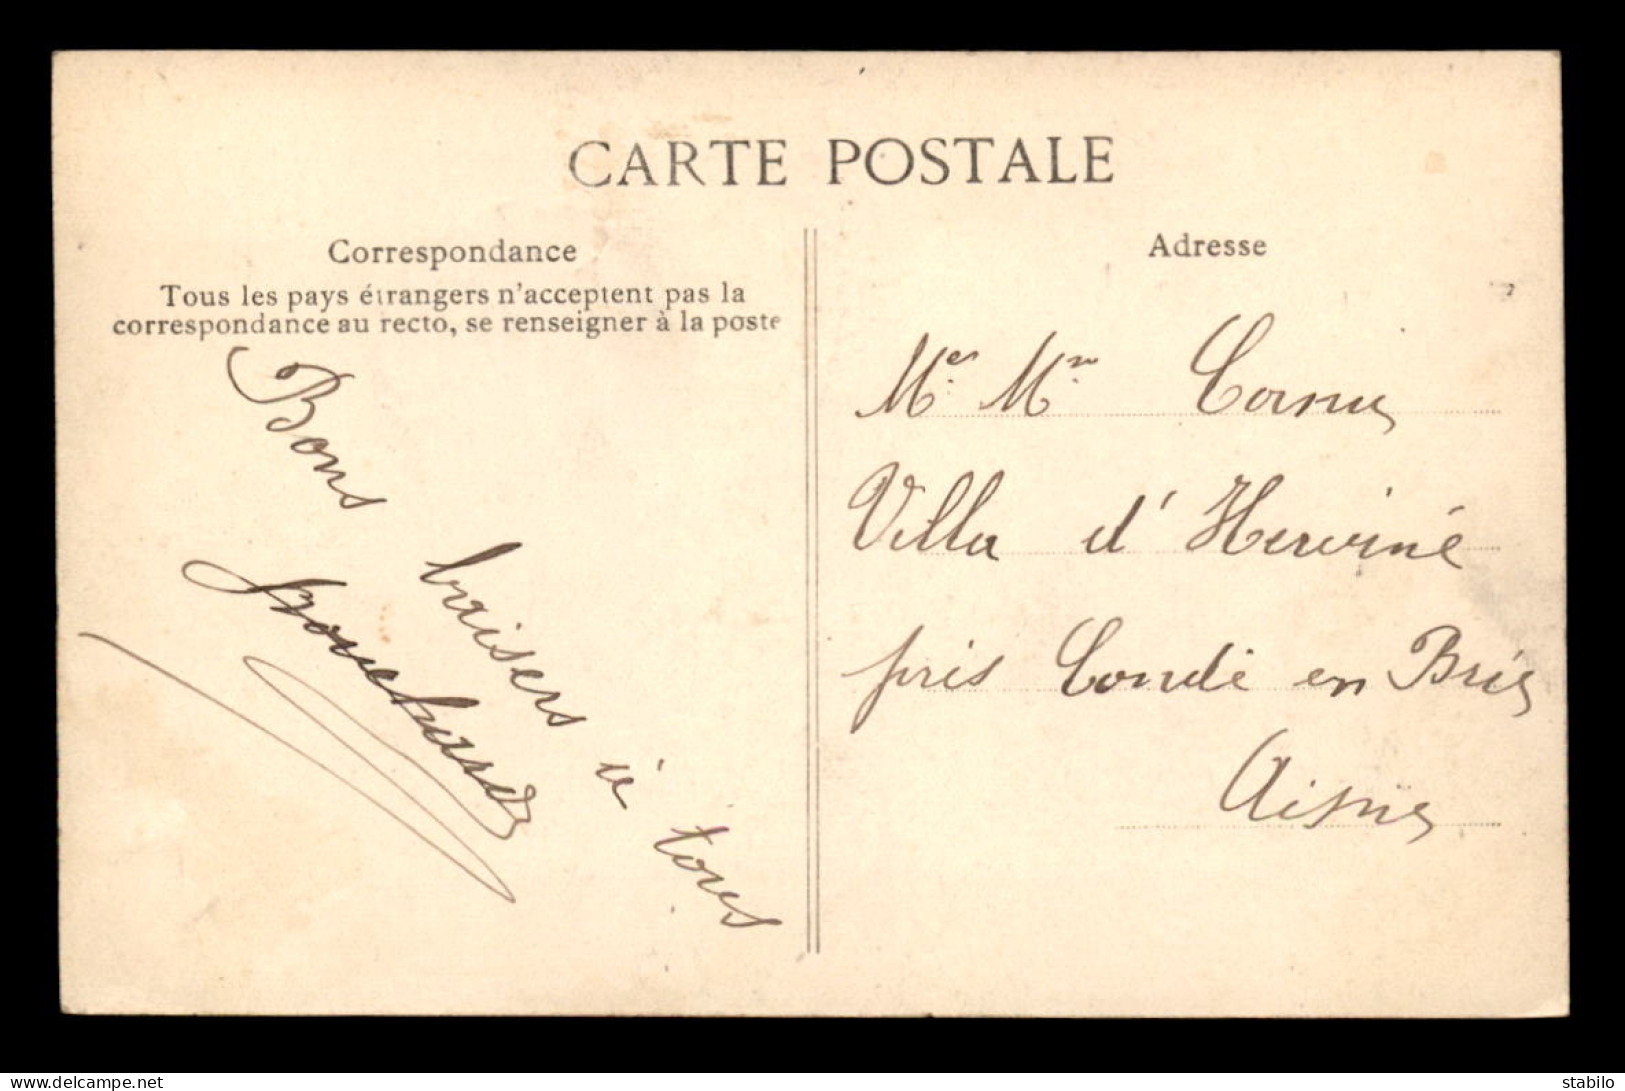 CARTE POSTALE
Correspondance
Tous les pays étrangers n'acceptent pas la
correspondance au recto, se renseigner à la poste
Bons baisers à tous
Adresse
Villa d'
près Condé en Brie
Aisne
delcampe.net
stabilo